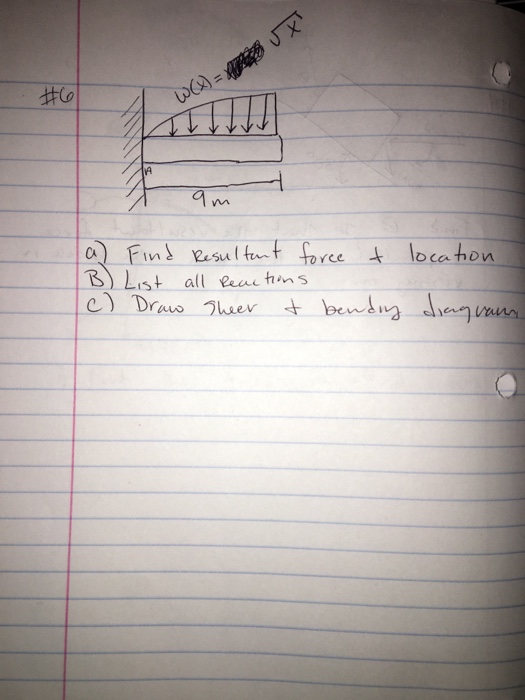 w(x) = √x
#6
A
9m
a) Find Resultant force + location
B) List all Reactions
c) Draw Sheer + bending diagram